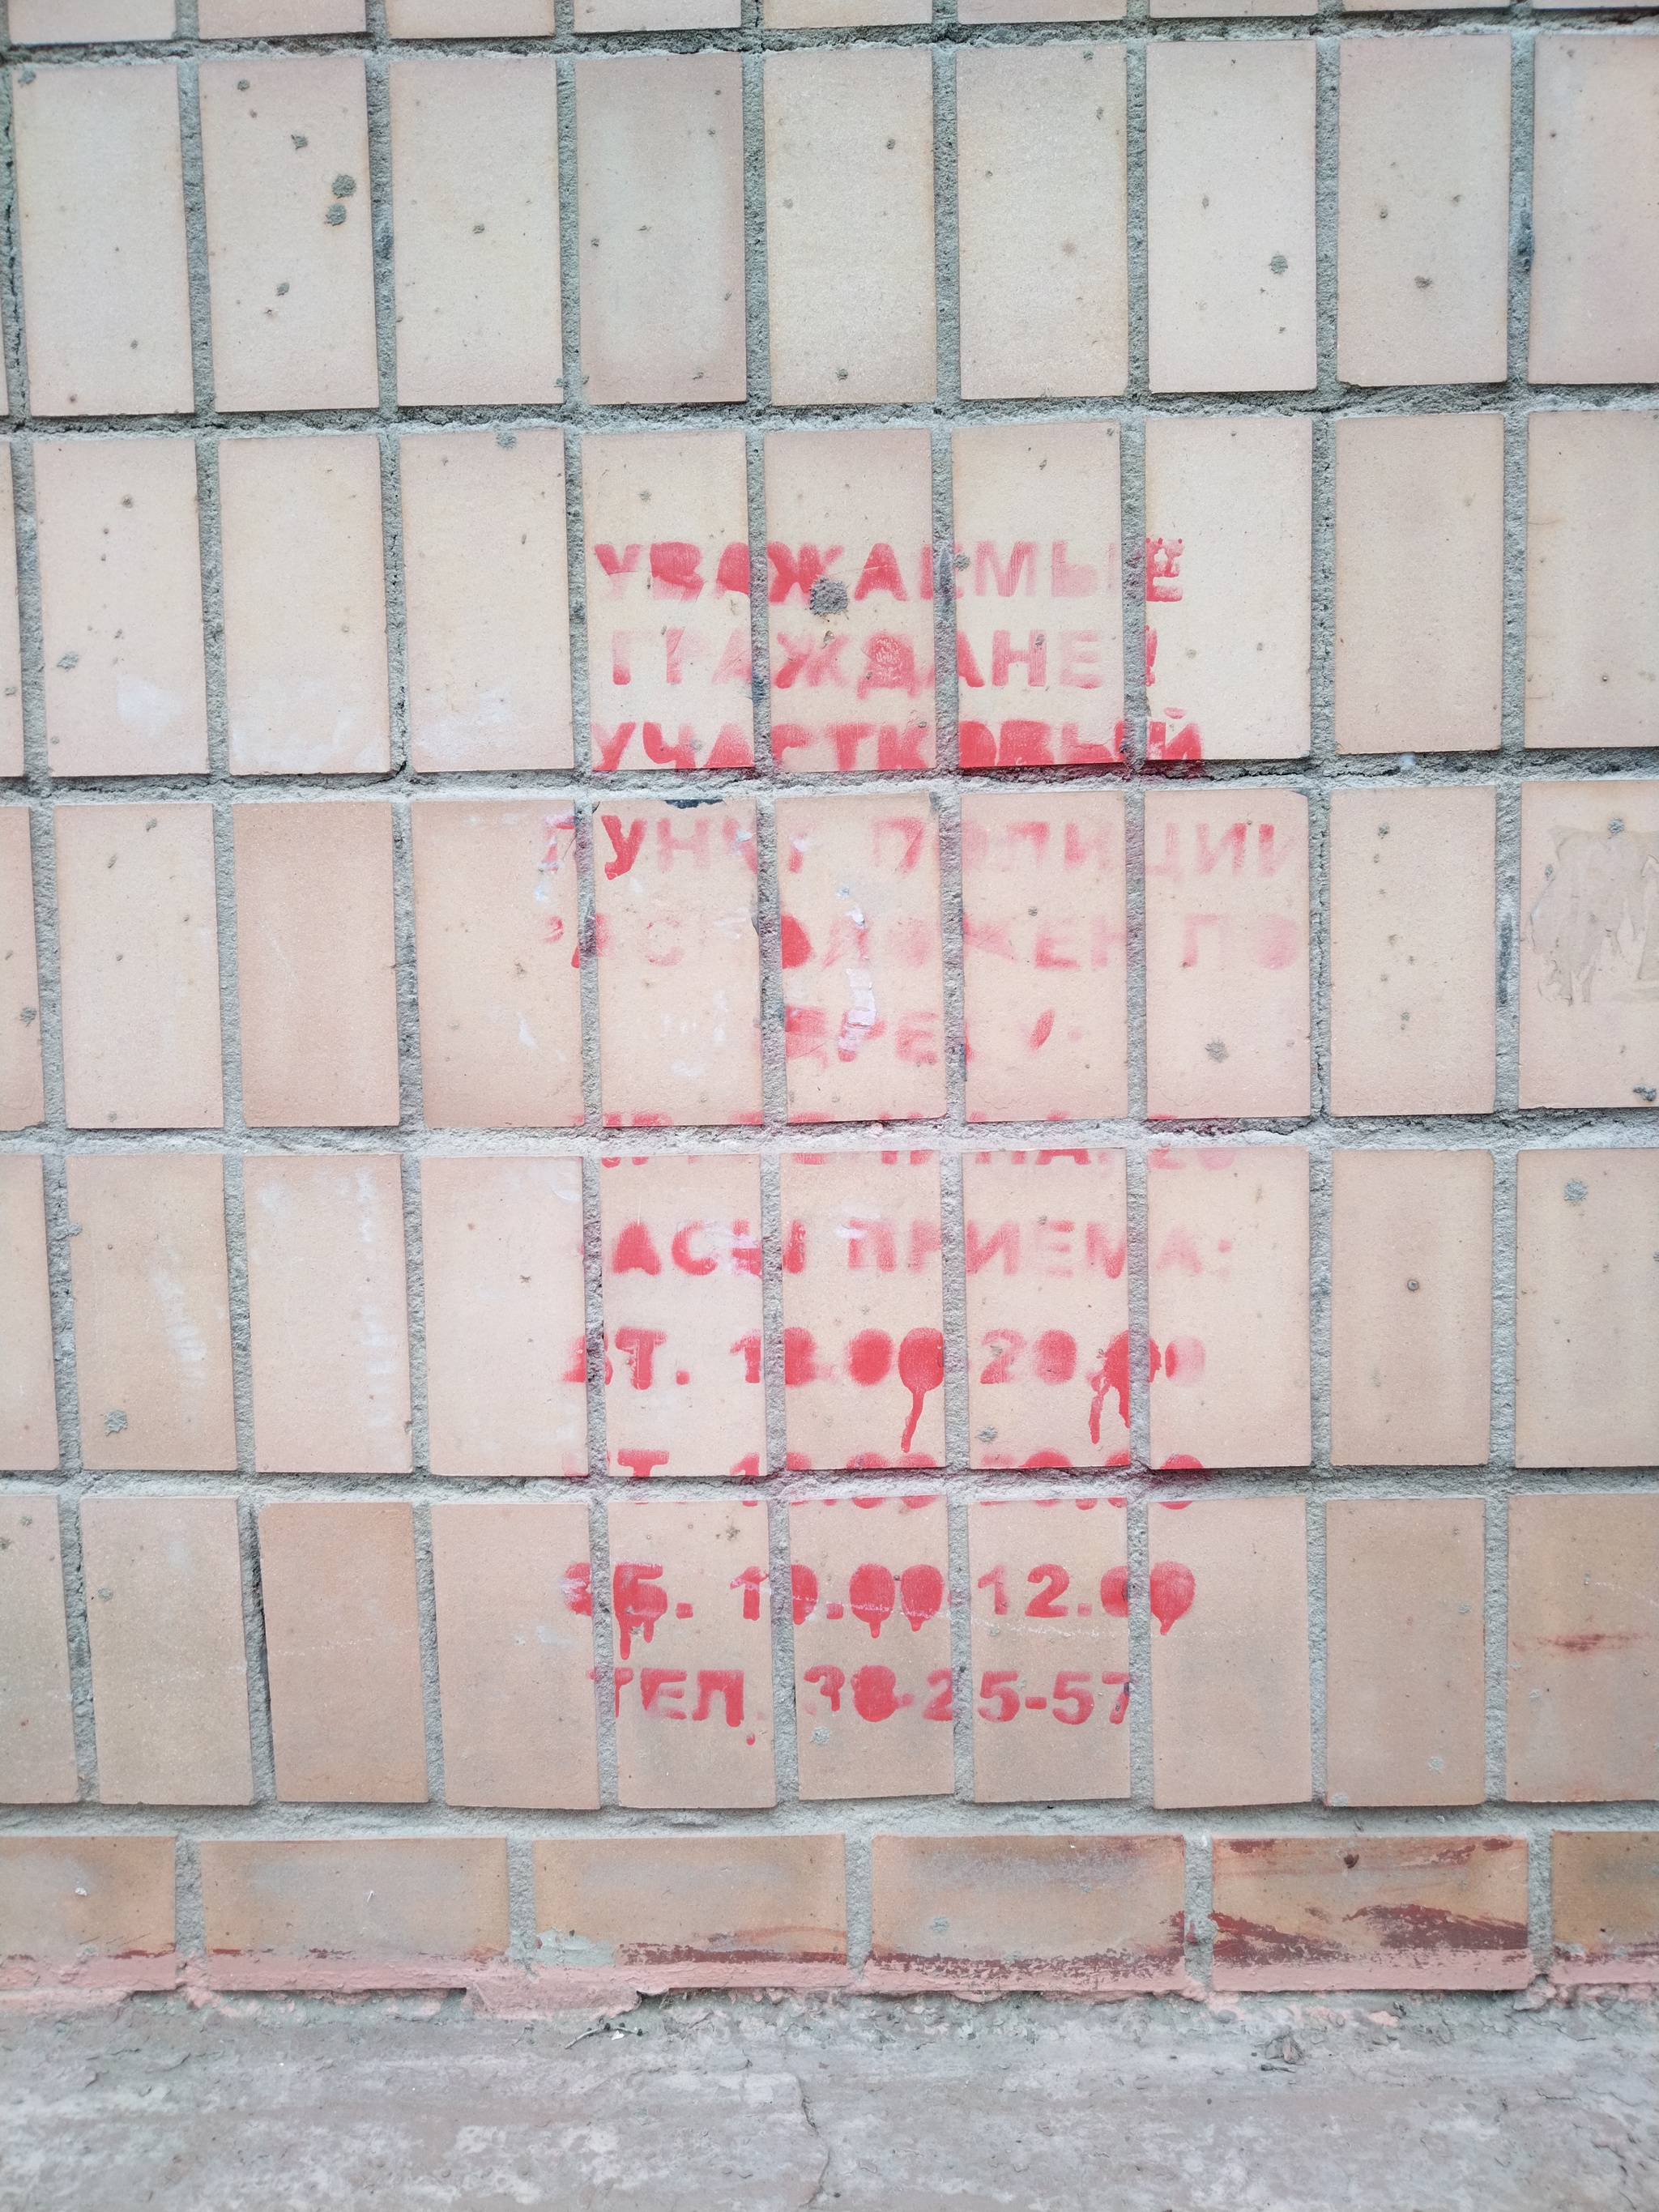 УВАЖАЕМЫЕ
ГРАЖДАНЕ!
УЧАСТКОВЫЙ
ПУНКТ ПОЛИЦИИ
РАСПОЛОЖЕН ПО
АДРЕСУ:
ЧАСЫ ПРИЕМА:
ВТ. 18.00 20.00
ЧТ. 18.00 20.00
СБ. 10.00 12.00
ТЕЛ. 38-25-57